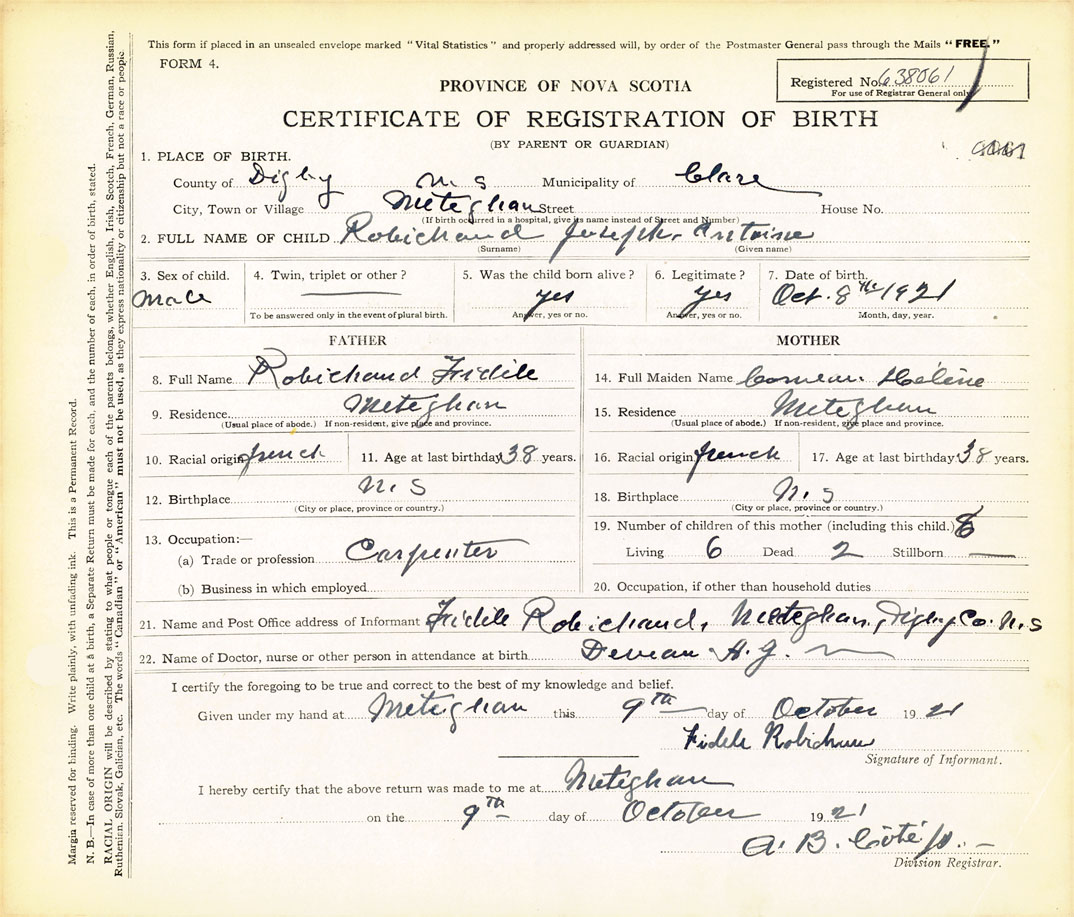 This form if placed in an unsealed envelope marked "Vital Statistics" and properly addressed will, by order of the Postmaster General pass through the Mails "FREE."
FORM 4.
Registered No. 638061
For use of Registrar General only
PROVINCE OF NOVA SCOTIA
CERTIFICATE OF REGISTRATION OF BIRTH
(BY PARENT OR GUARDIAN)
1. PLACE OF BIRTH.
County of Digby N. S Municipality of Clare
City, Town or Village Meteghan Street House No.
(If birth occurred in a hospital, give its name instead of Street and Number)
2. FULL NAME OF CHILD Robichaud Joseph Antoine
(Surname) (Given name)
3. Sex of child. 4. Twin, triplet or other? 5. Was the child born alive? 6. Legitimate? 7. Date of birth.
Male yes yes Oct. 8th 1921
To be answered only in the event of plural birth. Answer, yes or no. Answer, yes or no. Month, day, year.
FATHER MOTHER
8. Full Name Robichaud Fidile 14. Full Maiden Name Comeau Hélène
9. Residence Meteghan 15. Residence Meteghan
(Usual place of abode.) If non-resident, give place and province. (Usual place of abode.) If non-resident, give place and province.
10. Racial origin french 11. Age at last birthday 38 years. 16. Racial origin french 17. Age at last birthday 38 years.
12. Birthplace N. S 18. Birthplace N. S
(City or place, province or country.) (City or place, province or country.)
19. Number of children of this mother (including this child.) 8
13. Occupation:—
(a) Trade or profession Carpenter Living 6 Dead 2 Stillborn —
(b) Business in which employed 20. Occupation, if other than household duties
21. Name and Post Office address of Informant Fidile Robichaud, Meteghan, Digby Co. N. S
22. Name of Doctor, nurse or other person in attendance at birth A. J.
I certify the foregoing to be true and correct to the best of my knowledge and belief.
Given under my hand at Meteghan this 9th day of October 1921
Fidile Robichaud
Signature of Informant.
I hereby certify that the above return was made to me at Meteghan
on the 9th day of October 1921
A. B. Côté
Division Registrar.
Margin reserved for binding. Write plainly, with unfading ink. This is a Permanent Record.
N. B.—In case of more than one child at a birth, a Separate Return must be made for each, and the number of each, in order of birth, stated.
RACIAL ORIGIN will be described by stating to what people or tongue each of the parents belongs, whether English, Irish, Scotch, French, German, Russian,
Ruthenian, Slovak, Galician, etc. The words "Canadian" or "American" must not be used, as they express nationality or citizenship but not a race or people